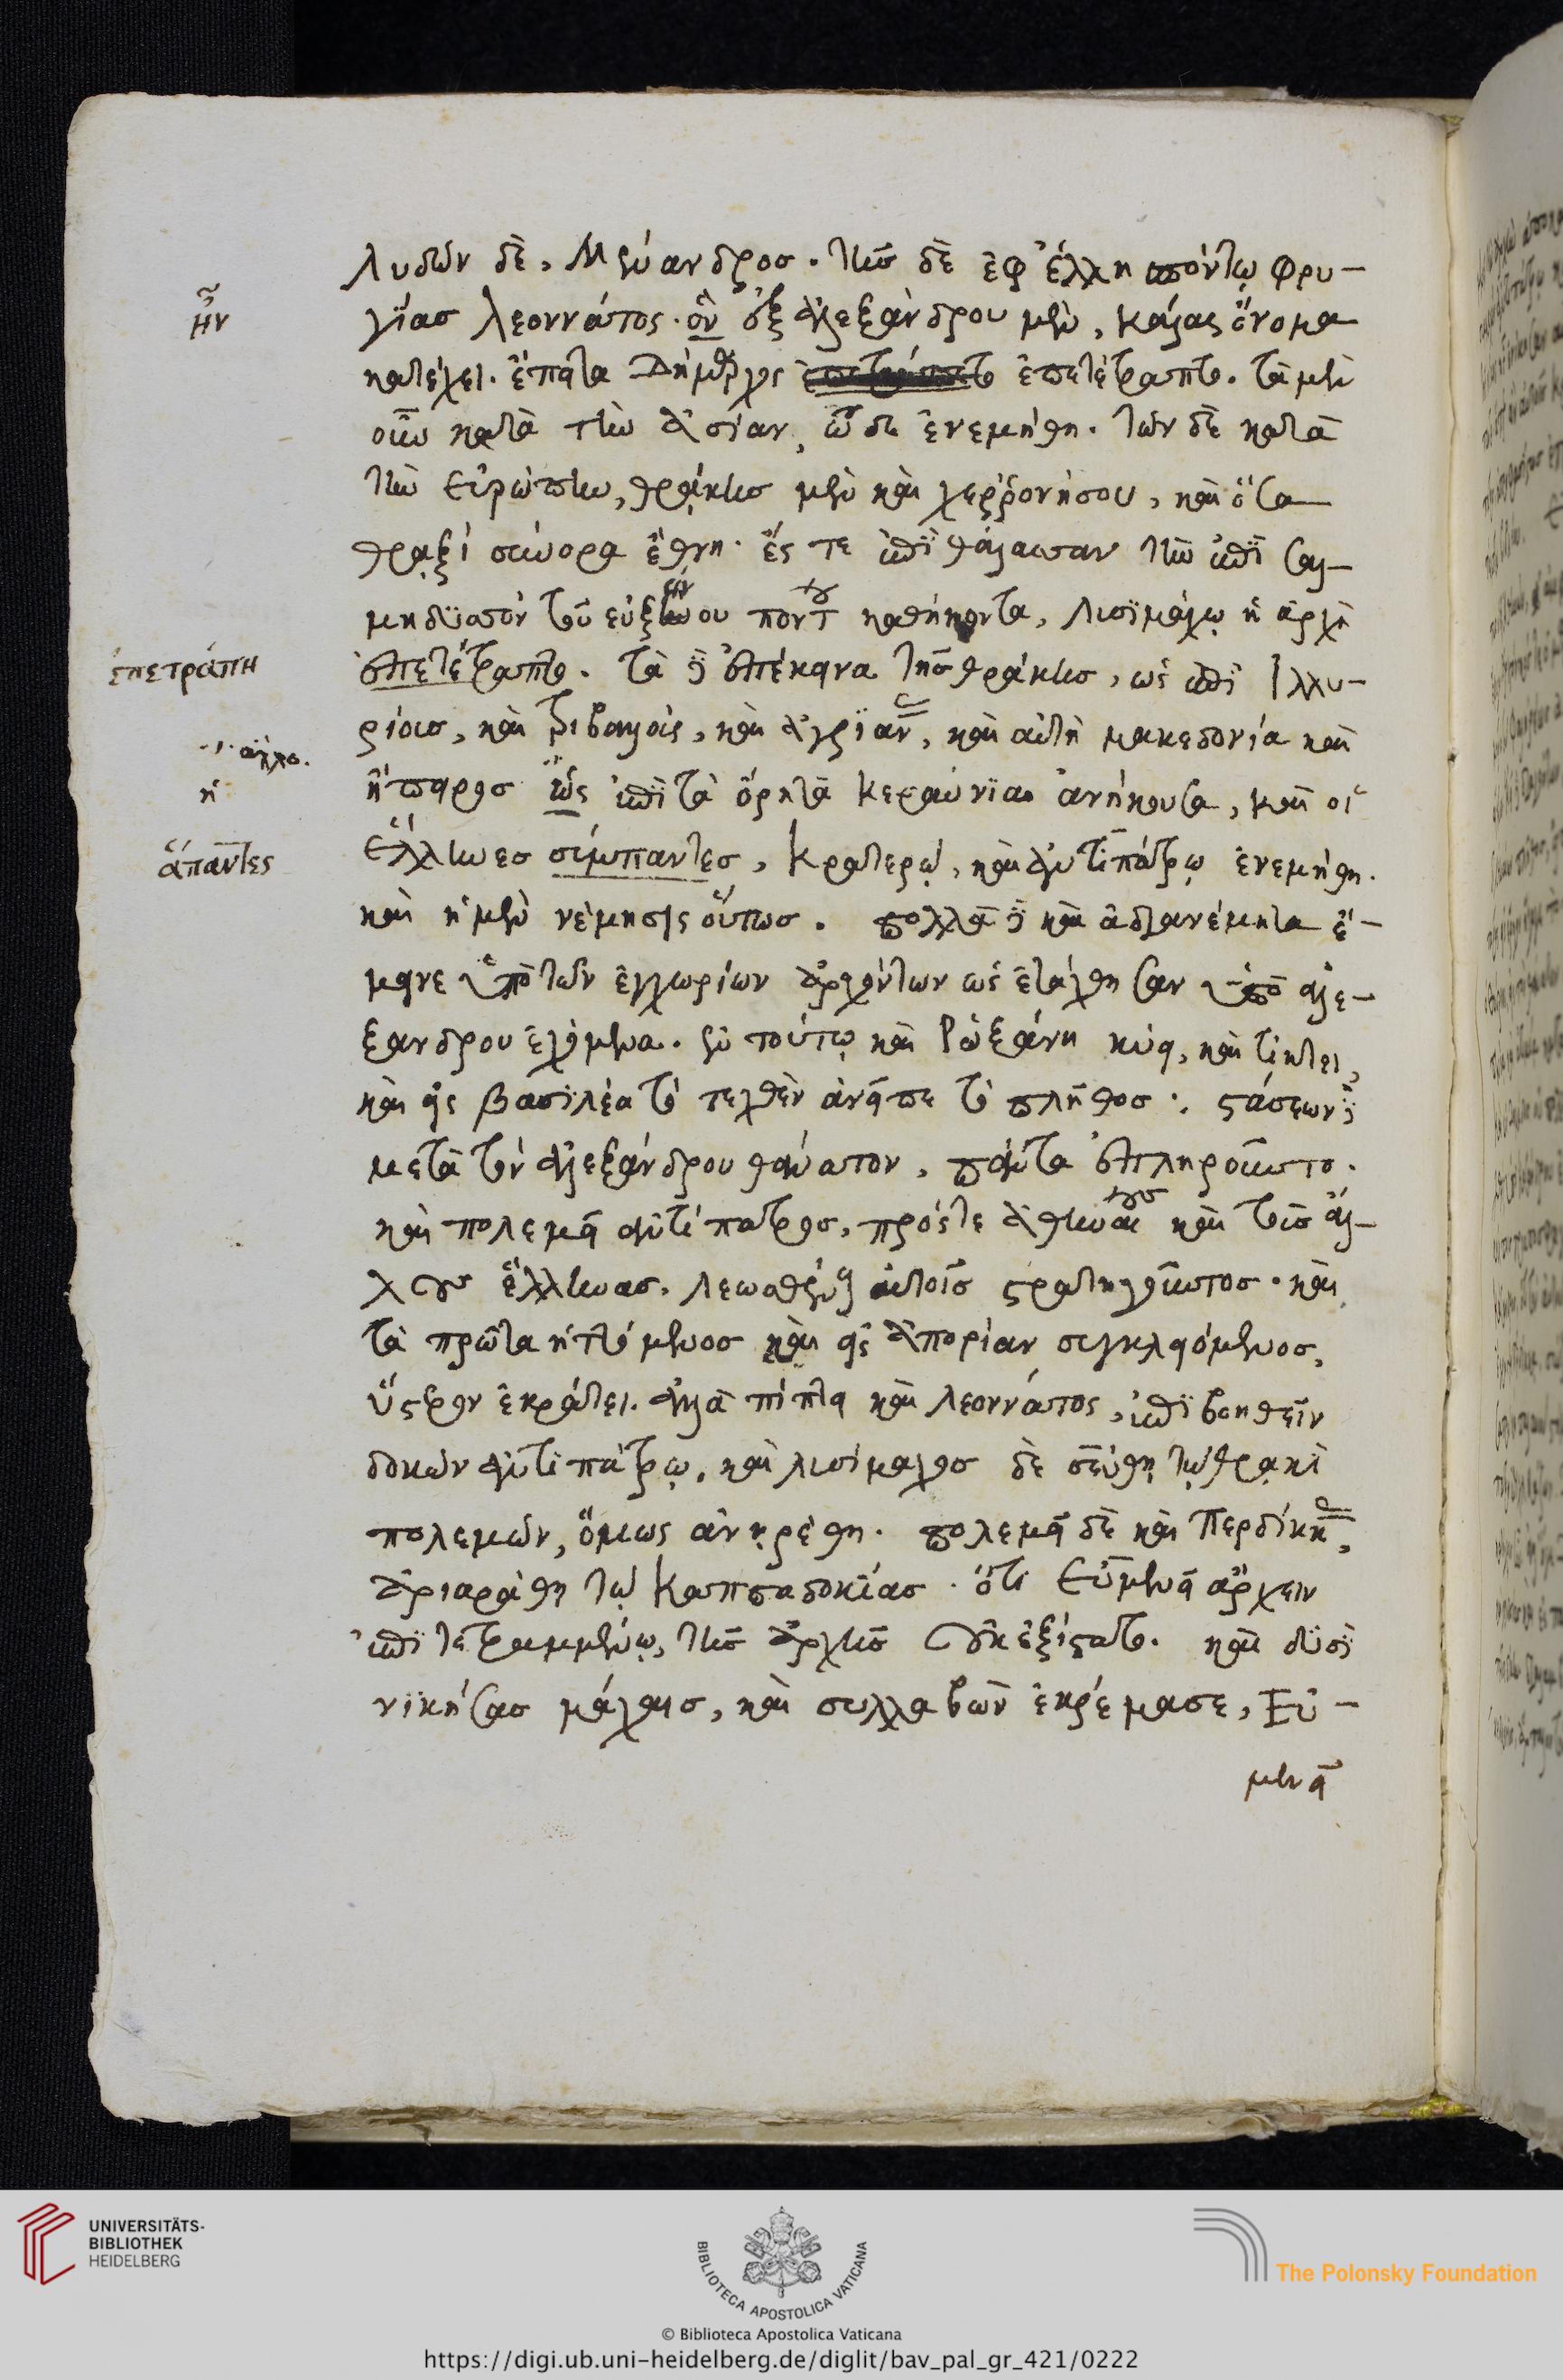 λυδῶν δὲ, Μένανδρος. τῆς δὲ ἐφ' ἑλλησπόντῳ φρυ-
ἣν
γίας λεοννάτος. ὃν ἐξ ἀλεξάνδρου μὲν, κάλας ὄνομα
κατέχει. ἔπειτα Δήμαρχος ἐπετέτραπτο. τὰ μὲν
οὖν κατὰ τὴν ἀσίαν, ὧδε ἐνεμήθη. τῶν δὲ κατὰ
τὴν εὐρώπην, θράκης μὲν καὶ χερρονήσου, καὶ ὅσα
θραξὶ σύνορα ἔθνη. ἔς τε ἐπὶ θάλασσαν τὴν ἐπὶ σαλ-
μηδυσὸν τοῦ εὐξείνου πόντου καθήκοντα, λυσιμάχῳ ἡ ἀρχὴ
ἐπετράπη
ἐπετέτραπτο. τὰ δὲ ἐπέκεινα τῆς θράκης, ὡς ἐπὶ Ἰλλυ-
ρίοις, καὶ τριβαλοῖς, καὶ ἀγριᾶνας, καὶ αὐτὴ μακεδονία καὶ
ἡ
ἤπειρος ὡς ἐπὶ τὰ ὄρη τὰ κεραύνια ἀνήκουσα, καὶ οἱ
ἅπαντες
ἕλληνες σύμπαντες, κρατερῷ, καὶ ἀντιπάτρῳ ἐνεμήθη.
καὶ ἡ μὲν νέμησις οὕτως. πολλὰ δὲ καὶ ἀδιανέμητα ἔ-
μεινε ὑπὸ τῶν ἐγχωρίων ἀρχόντων ὡς ἐτάχθησαν ὑπὸ ἀλε-
ξάνδρου ἐχόμενα. ἐν τούτῳ καὶ Ῥωξάνη κύει, καὶ τίκτει,
καὶ εἰς βασιλέα τὸ τεχθὲν ἀνεῖπε τὸ πλῆθος. στάσεων δὲ
μετὰ τὸν ἀλεξάνδρου θάνατον, πάντα ἐπληροῦντο.
καὶ πολεμεῖ ἀντίπατρος, πρός τε ἀθηναίους καὶ τοὺς ἄλ-
λους ἕλληνας. λεωσθένους αὐτοῖς στρατηγοῦντος. καὶ
τὰ πρῶτα ἡττόμενος καὶ εἰς ἀπορίαν συγκλειόμενος,
ὕστερον ἐκράτει. ἀλλὰ πίπτει καὶ λεοννάτος, ἐπιβοηθεῖν
δοκῶν ἀντιπάτρῳ. καὶ λυσίμαχος δὲ σεύθῃ τῷ θρᾳκὶ
πολεμῶν, ὅμως ἀνῃρέθη. πολεμεῖ δὲ καὶ Περδίκκας,
ἀριαράθῃ τῷ καππαδοκίας. ὅτι εὐμενεῖ ἄρχειν
ἐπιτετραμμένῳ, τῆς ἀρχῆς οὐκ ἐξίστατο. καὶ δυσὶ
νικήσας μάχαις, καὶ συλλαβὼν ἐκρέμασε, Εὐ-
μενεῖ
UNIVERSITÄTS-
BIBLIOTHEK
HEIDELBERG
BIBLIOTECA APOSTOLICA VATICANA
The Polonsky Foundation
© Biblioteca Apostolica Vaticana
https://digi.ub.uni-heidelberg.de/diglit/bav_pal_gr_421/0222